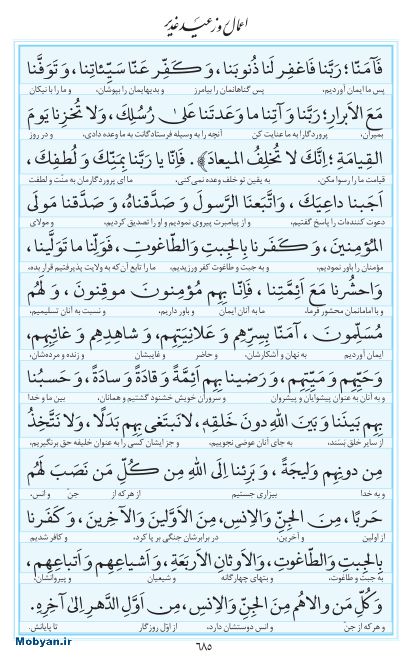 اعمال روز عید غدیر
فَآمَنّا؛ رَبَّنا فَاغفِر لَنا ذُنوبَنا، وَ کَفِّر عَنّا سَیِّئاتِنا، وَ تَوَفَّنا
پس ما ایمان آوردیم، پس گناهانمان را بیامرز و بدیهایمان را بپوشان، و ما را با نیکان
مَعَ الاَبرارِ؛ رَبَّنا وَ آتِنا ما وَعَدتَنا عَلیٰ رُسُلِكَ، وَلا تُخزِنا یَومَ
بمیران، پروردگارا به ما عنایت کن آنچه را به وسیله فرستادگانت به ما وعده دادی، و در روز
القِیامَةِ؛ اِنَّكَ لا تُخلِفُ المیعادَ﴾. فَاِنّا یا رَبَّنا بِمَنِّكَ وَ لُطفِكَ،
قیامت ما را رسوا مکن، به یقین تو خلف وعده نمی‌کنی، ما ای پروردگارمان به منّت و لطفت
اَجَبنا داعِیَكَ، وَ اتَّبَعنَا الرَّسولَ وَ صَدَّقناهُ، وَ صَدَّقنا مَولَی
دعوت کننده‌ات را پاسخ گفتیم، و از پیامبرت پیروی نمودیم و او را تصدیق کردیم، و مولای
المُؤمِنینَ، وَ کَفَرنا بِالجِبتِ وَالطّاغوتِ، فَوَلِّنا ما تَوَلَّینا،
مؤمنان را باور نمودیم، و به جبت و طاغوت کفر ورزیدیم، ما را تابع آن که به ولایت پذیرفتیم قرار بده،
وَاحشُرنا مَعَ اَئِمَّتِنا، فَاِنّا بِهِم مُؤمِنونَ موقِنونَ، وَ لَهُم
و با امامانمان محشور فرما، ما به آنان ایمان و باور داریم، و نسبت به آنان تسلیمیم،
مُسَلِّمونَ، آمَنّا بِسِرِّهِم وَ عَلانِیَتِهِم، وَ شاهِدِهِم وَ غائِبِهِم،
ایمان آوردیم به نهان و آشکارشان، و حاضر و غایبشان و زنده و مرده‌شان،
وَ حَیِّهِم وَ مَیِّتِهِم، وَ رَضینا بِهِم اَئِمَّةً وَ قادَةً وَ سادَةً، وَ حَسبُنا
و به آنان به عنوان پیشوایان و پیشروان و سروران خویش خشنود گشتیم و همانان، بین ما و خدا
بِهِم بَینَنا وَ بَینَ اللهِ دونَ خَلقِهِ، لانَبتَغی بِهِم بَدَلًا، وَ لا نَتَّخِذُ
از سایر خلق بَسَند، به جای آنان عوضی نجوییم، و جز ایشان کسی را به عنوان خلیفه حق برنگیریم،
مِن دونِهِم وَلیجَةً، وَ بَرِئنا اِلَی اللهِ مِن کُلِّ مَن نَصَبَ لَهُم
و به خدا بیزاری جستیم از هر که از جنّ و انس،
حَربًا، مِنَ الجِنِّ وَ الاِنسِ، مِنَ الاَوَّلینَ وَ الآخِرینَ، وَ کَفَرنا
از اوّلین و آخرین، در برابرشان جنگی بر پا کرد، و کافر شدیم
بِالجِبتِ وَ الطّاغوتِ، وَ الاَوثانِ الاَربَعَةِ، وَ اَشیاعِهِم وَ اَتباعِهِم،
به جبت و طاغوت، و بتهای چهارگانه و شیعیان و پیروانشان،
وَ کُلِّ مَن والاهُم مِنَ الجِنِّ وَ الاِنسِ، مِن اَوَّلِ الدَّهرِ اِلیٰ آخِرِهِ.
و هر که از جنّ و انس دوستشان دارد، از اوّل روزگار تا پایانش.
۶۸۵
Mobyan.ir